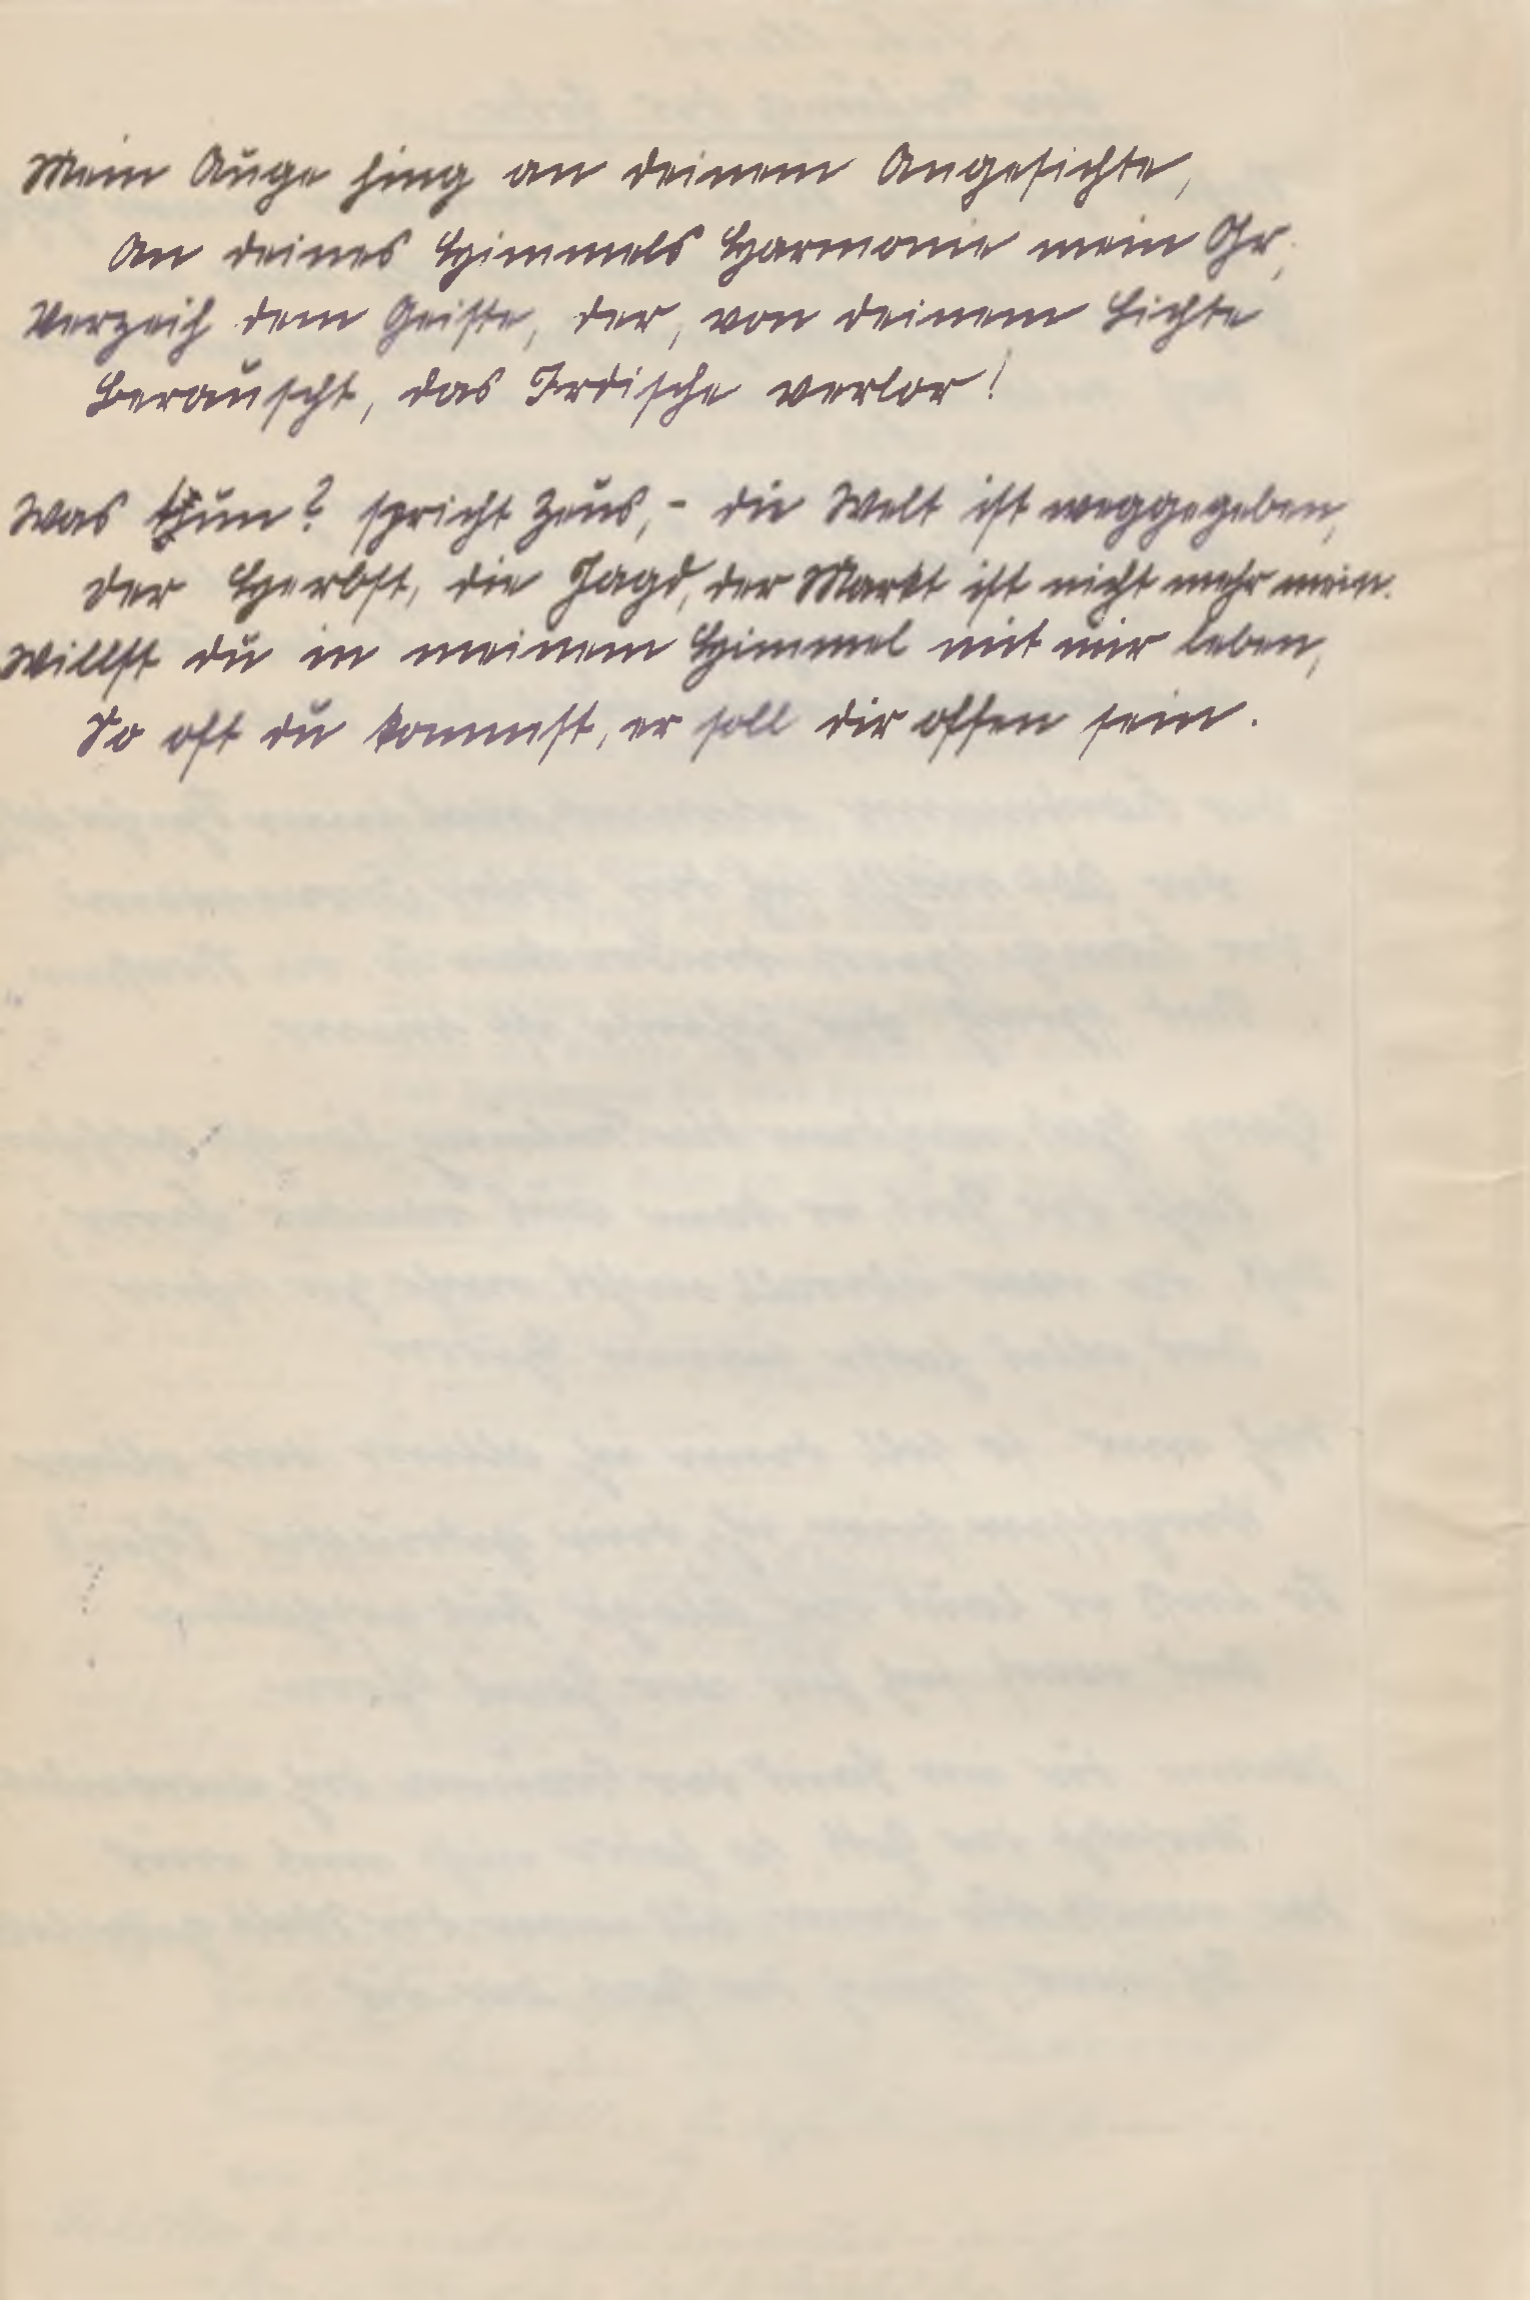 Mein Auge hing an deinem Angesichte,
An deines Himmels Harmonie mein Ohr,
Verzeih dem Geiste, der, von deinem Lichte
Berauscht, das Irdische verlor!
Was thun? spricht Zeus,- die Welt ist weggegeben,
Der Herbst, die Jagd, der Markt ist nicht mehr mein.
Willst du in meinem Himmel mit mir leben,
So oft du kommst, er soll dir offen sein.